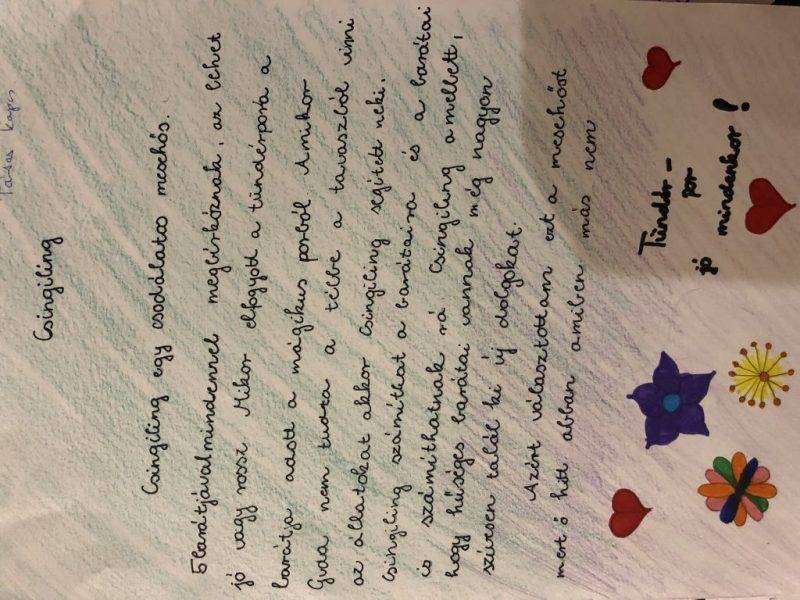 Csingiling
Csingiling egy csodálatos mesehős.
5 barátjával mindennel megbírkóznak, az lehet
jó vagy rossz Mikor elfogyott a tündérpora a
barátja adott a mágikus porból Amikor
Guda nem tudta a télbe a tavaszból vinni
az állatokat akkor Csingiling segített neki.
Csingiling számíthat a barátaira és a barátai
is számíthatnak rá Csingiling amellett,
hogy hűséges barátai vannak még nagyon
szívesen talál ki új dolgokat.
Azért választottam ezt a mesehőst
mert ő hitt abban amiben más nem
Tündér-
por
jó mindenkor!